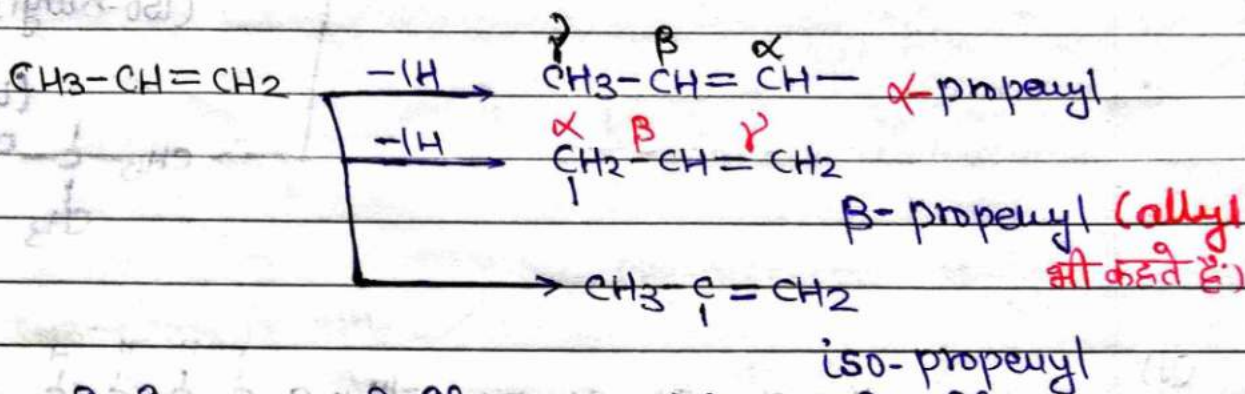 γ β α
CH3-CH=CH2 -1H CH3-CH=CH— α-propenyl
α β γ
-1H CH2-CH=CH2
β-propenyl (allyl
भी कहते हैं)
CH3-C=CH2
iso-propenyl